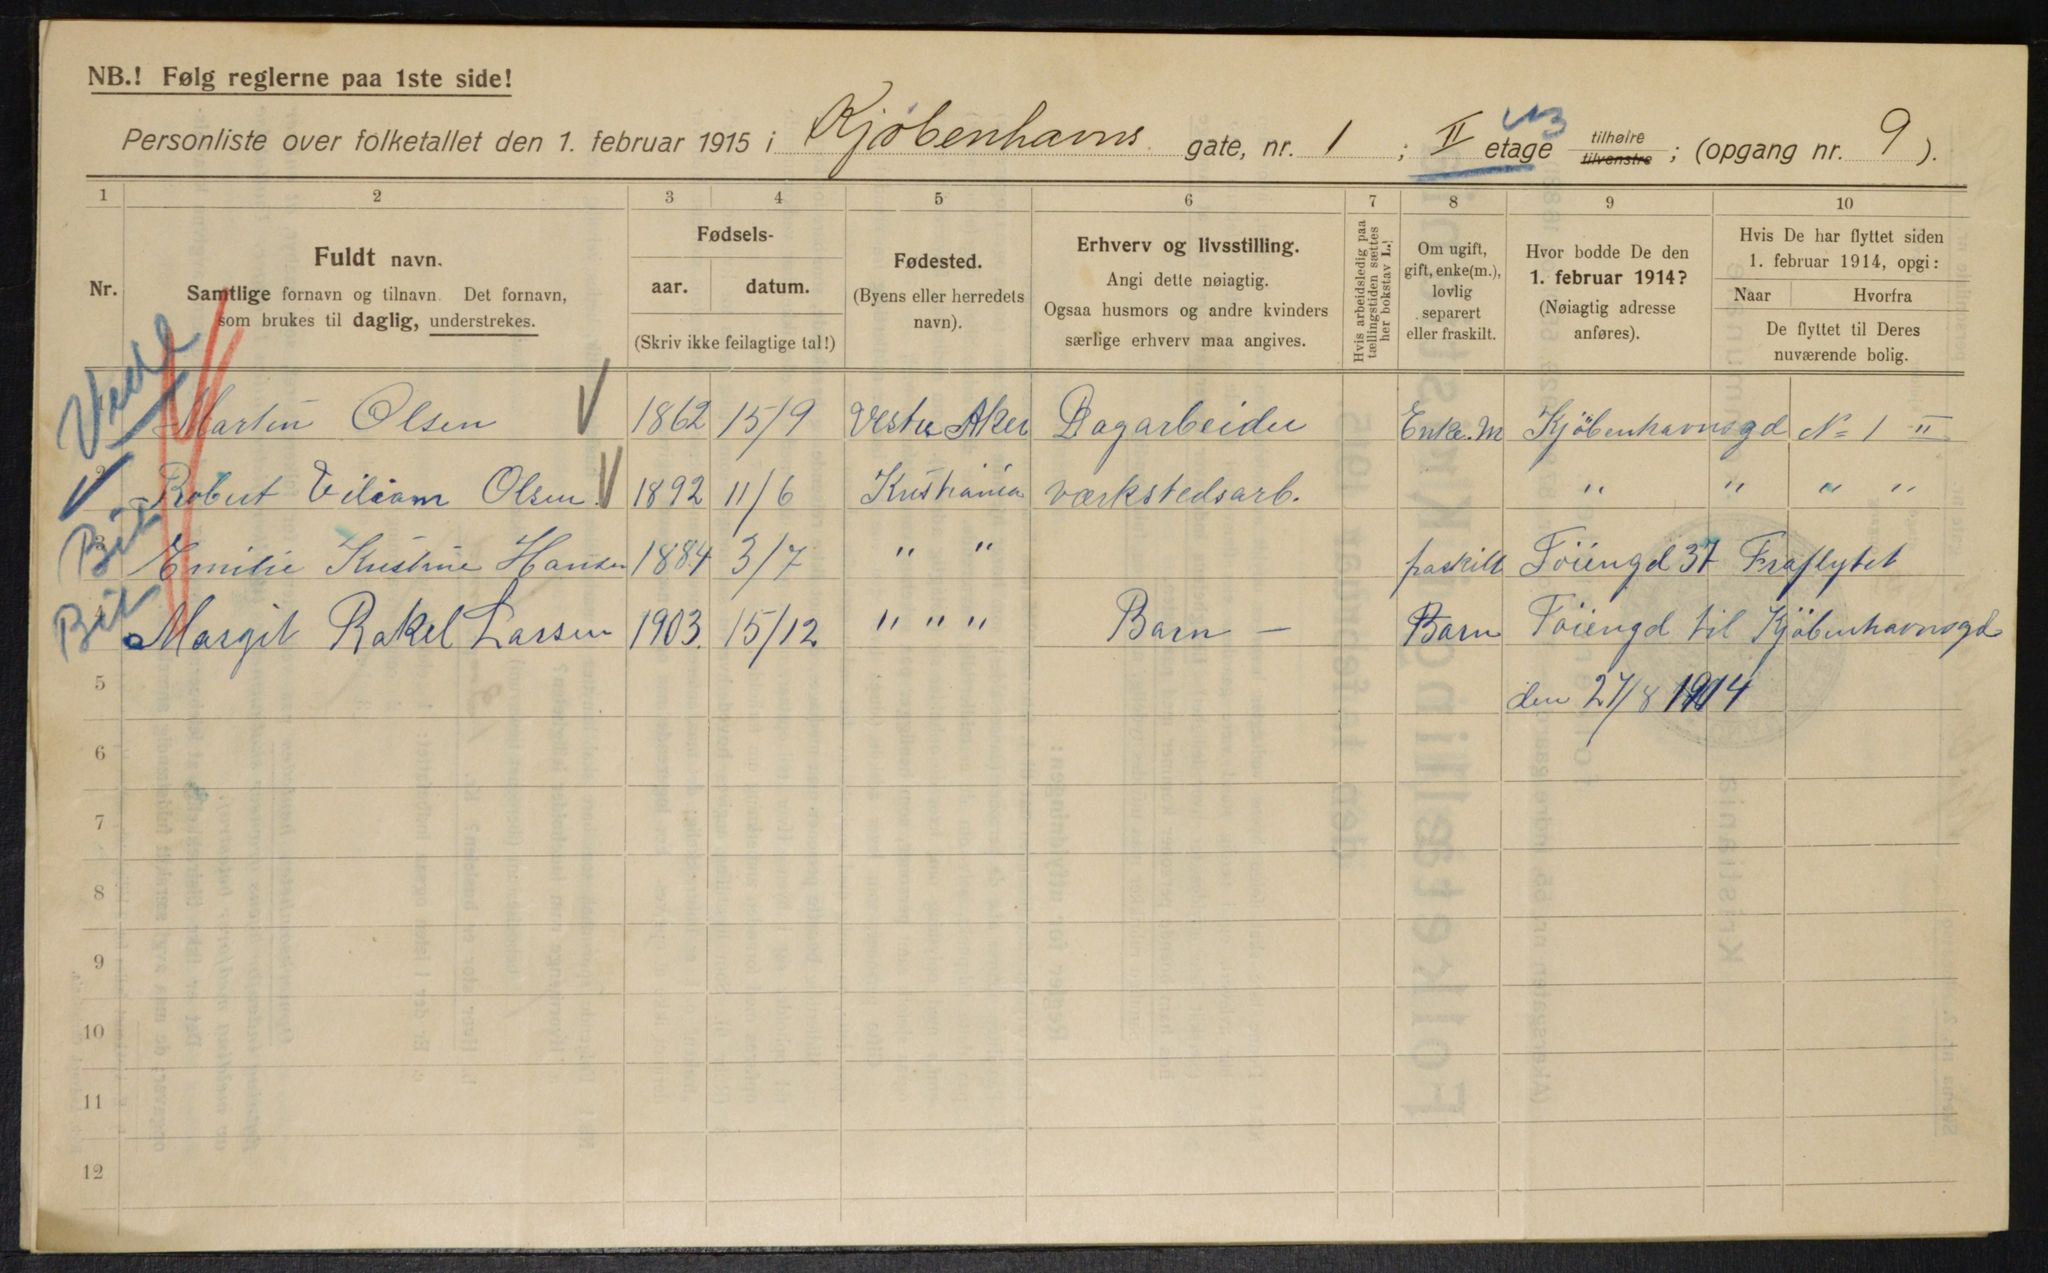 NB.! Følg reglerne paa 1ste side!
Personliste over folketallet den 1. februar 1915 i Kjøbenhavns gate, nr. 1 ; II etage tilhøire tilvenstre ; (opgang nr. 9 ).
1 2 3 4 5 6 7 8 9 10
Nr.
Fuldt navn.
Samtlige fornavn og tilnavn. Det fornavn,
som brukes til daglig, understrekes.
Fødsels-
aar. datum.
(Skriv ikke feilagtige tal!)
Fødested.
(Byens eller herredets
navn).
Erhverv og livsstilling.
Angi dette nøiagtig.
Ogsaa husmors og andre kvinders
særlige erhverv maa angives.
Hvis arbeidsledig paa
tællingstiden sættes
her bokstav L.!
Om ugift,
gift, enke(m.),
lovlig
separert
eller fraskilt.
Hvor bodde De den
1. februar 1914?
(Nøiagtig adresse
anføres).
Hvis De har flyttet siden
1. februar 1914, opgi:
Naar Hvorfra
De flyttet til Deres
nuværende bolig.
Martin Olsen 1862 15/9 Vestre Aker Dagarbeider Enke.M Kjöbenhavnsgd No 1 II
2 Robert Viliam Olsen 1892 11/6 Kristiania værkstedsarb. " " " "
3 Emilie Kristine Hansen 1884 3/7 " " fraskilt Töiengd 37 Fraflytet
4 Margit Rakel Larsen 1903. 15/12 " " " Barn — Barn Töiengd til Kjöbenhavnsgd
5 den 27/8 1914
6
7
8
9
10
11
12